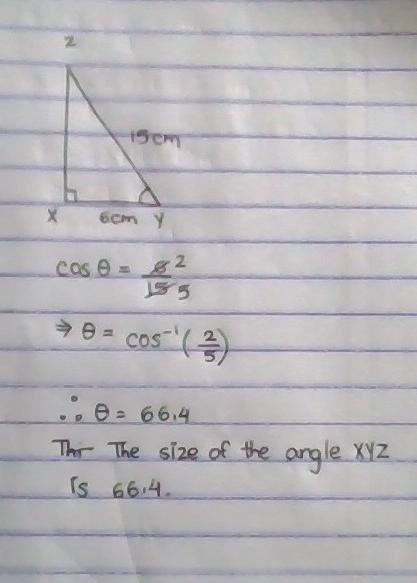 Z
15cm
X 6cm Y
cos θ = 6 2
15 5
⇒ θ = cos⁻¹(2/5)
∴ θ = 66.4
Thr The size of the angle XYZ
is 66.4.